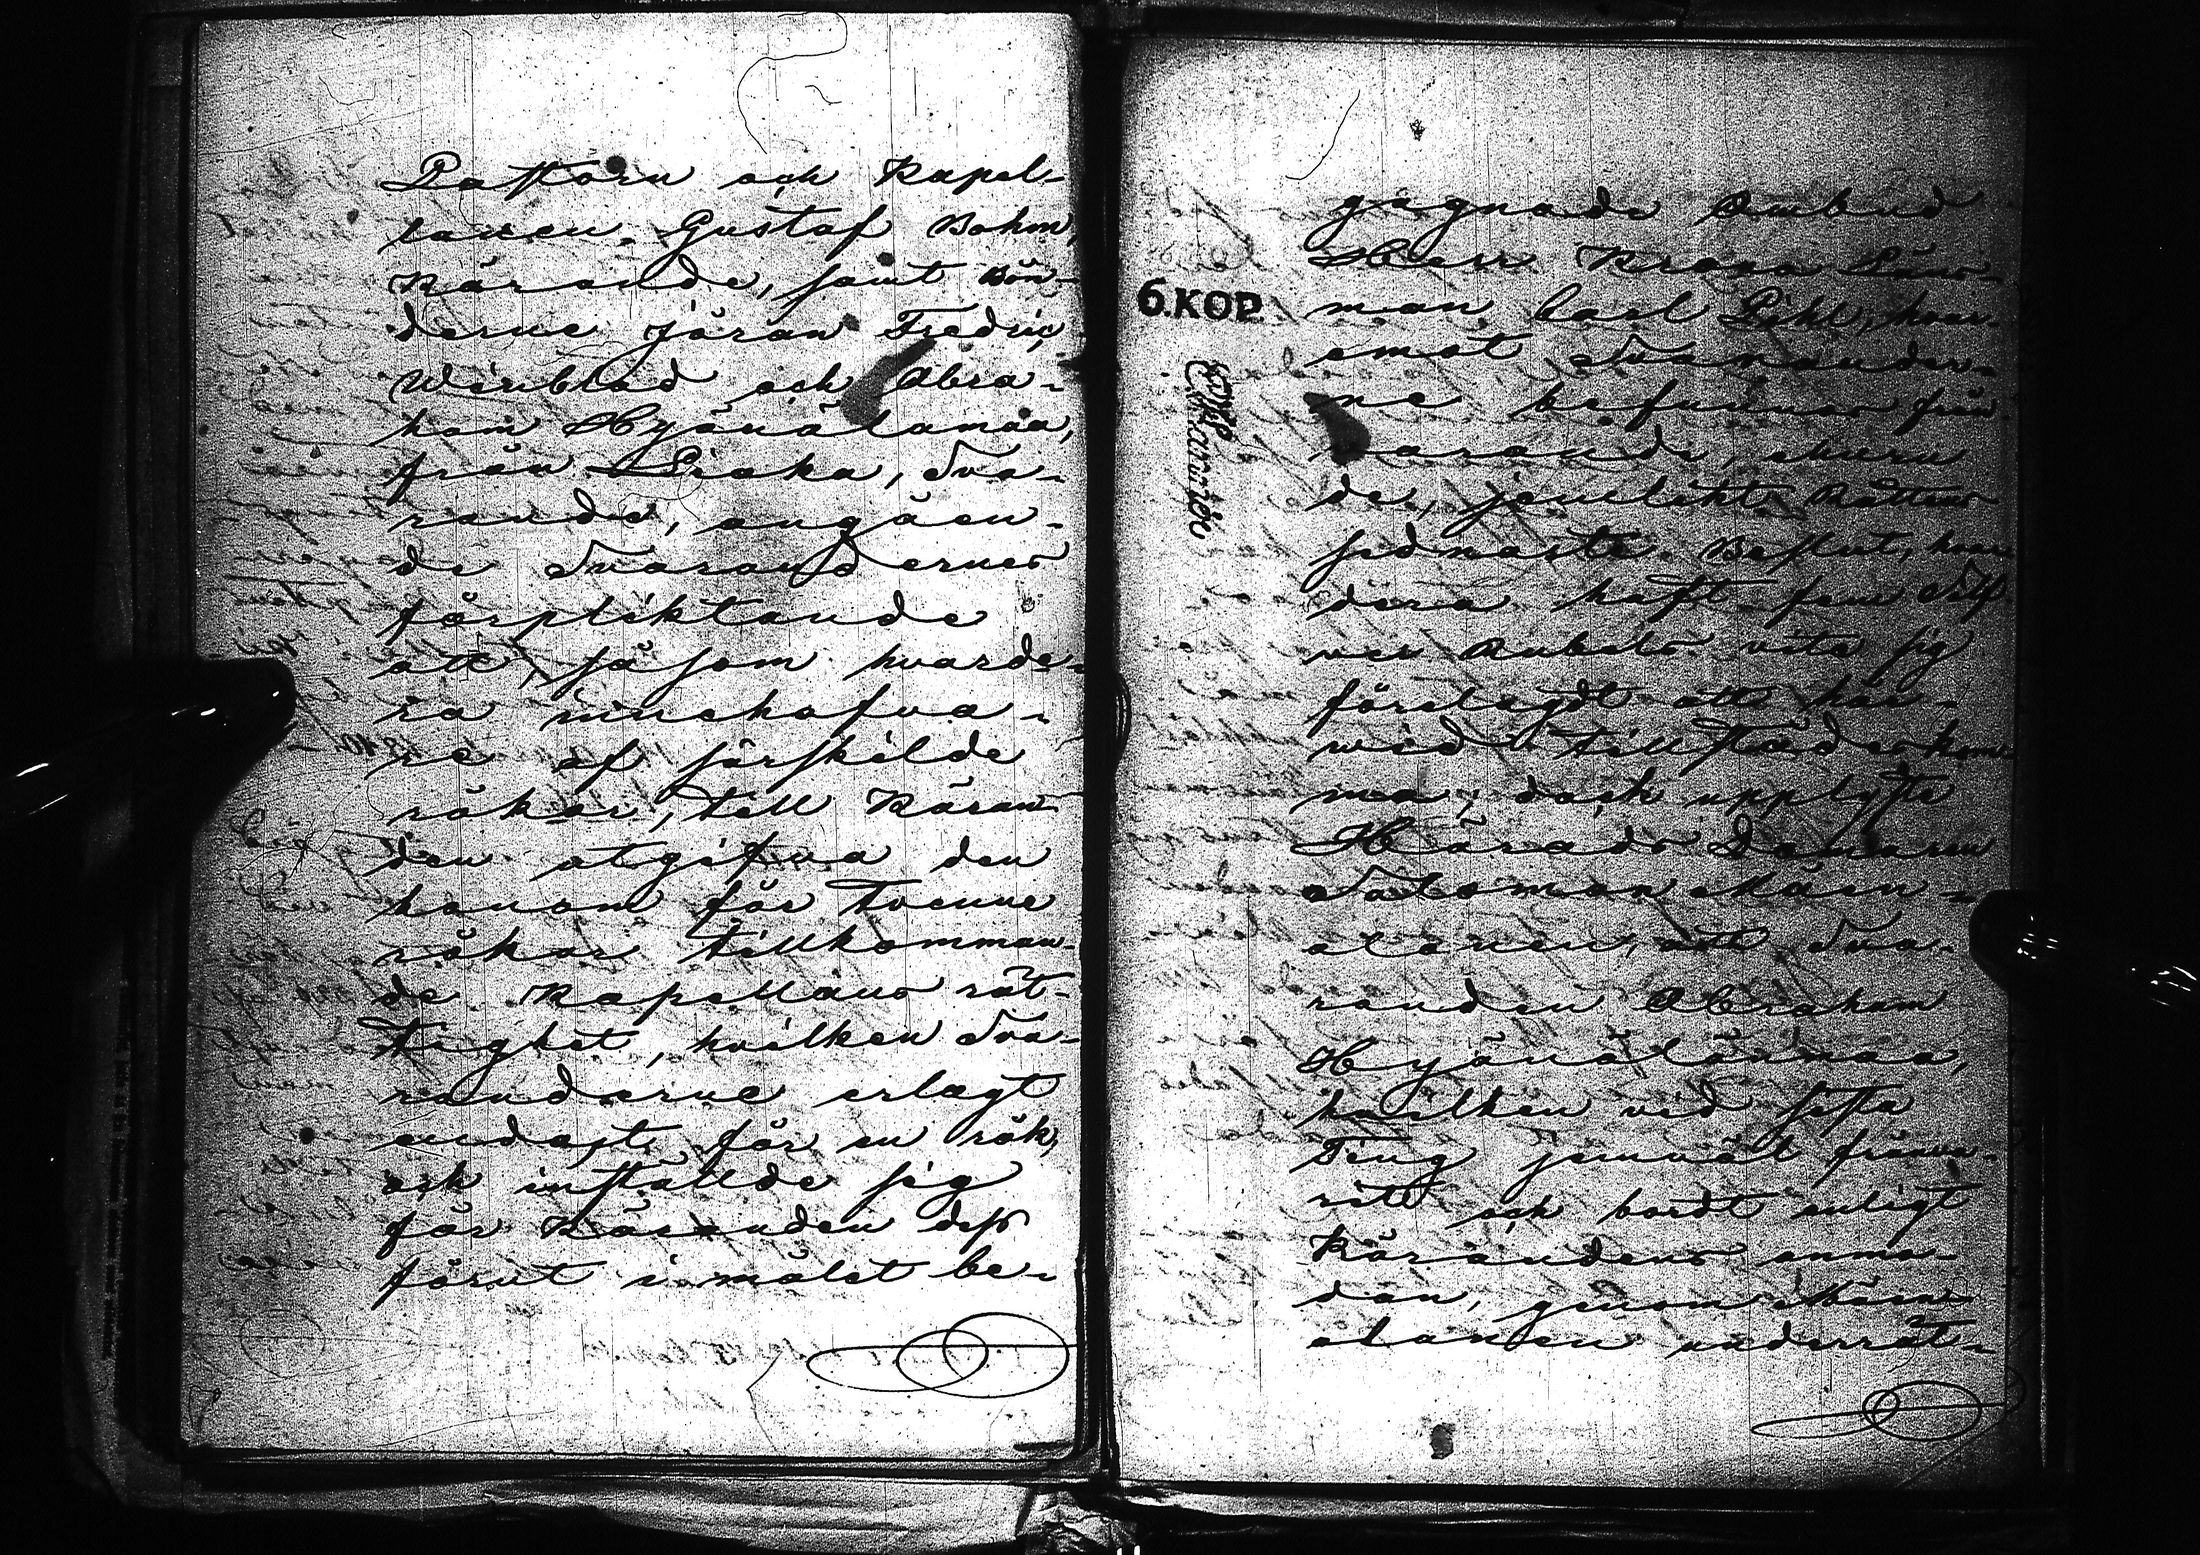 Pastorn och Kapel-
lanen Gustaf Bohm,
Kärande, samt Bön-
derne Jöran Fredric
Winblad och Abra-
ham Hyönälamaa,
från Liaka, Sva-
rande, angåen-
de Svarandernes
förpliktande
att såsom hvarde-
ra innehafva-
re af särskilde
rökar, till Käran-
den utgifva den
honom för tvenne
rökar tillkomman-
de Kapellans rät-
tighet, hvilken Sva-
randerne erlagt
endast för en rök,
och inställde sig
för Käranden dess
förut i målet be-
gagnade Ombud
Herr Krono Läns-
man Carl Pihl, hvar-
emot Svarander-
ne befunnos från-
varande, ehuru
de, jemlikt Rättens
sednaste Beslut, hvar-
dera haft fem Silf-
ver Rubels vite sig
förelagdt att här-
wid tillstädes kom-
ma; dock upplyste
Härads Domaren
Salomon Määt-
alanen, att Sva-
randen Abraham
Hyönälämaa,
hvilken vid sista
Ting jemväl frånva-
rit och bordt enligt
Kärandens anma-
dan, genom
alanen underrät-
6.KOP.